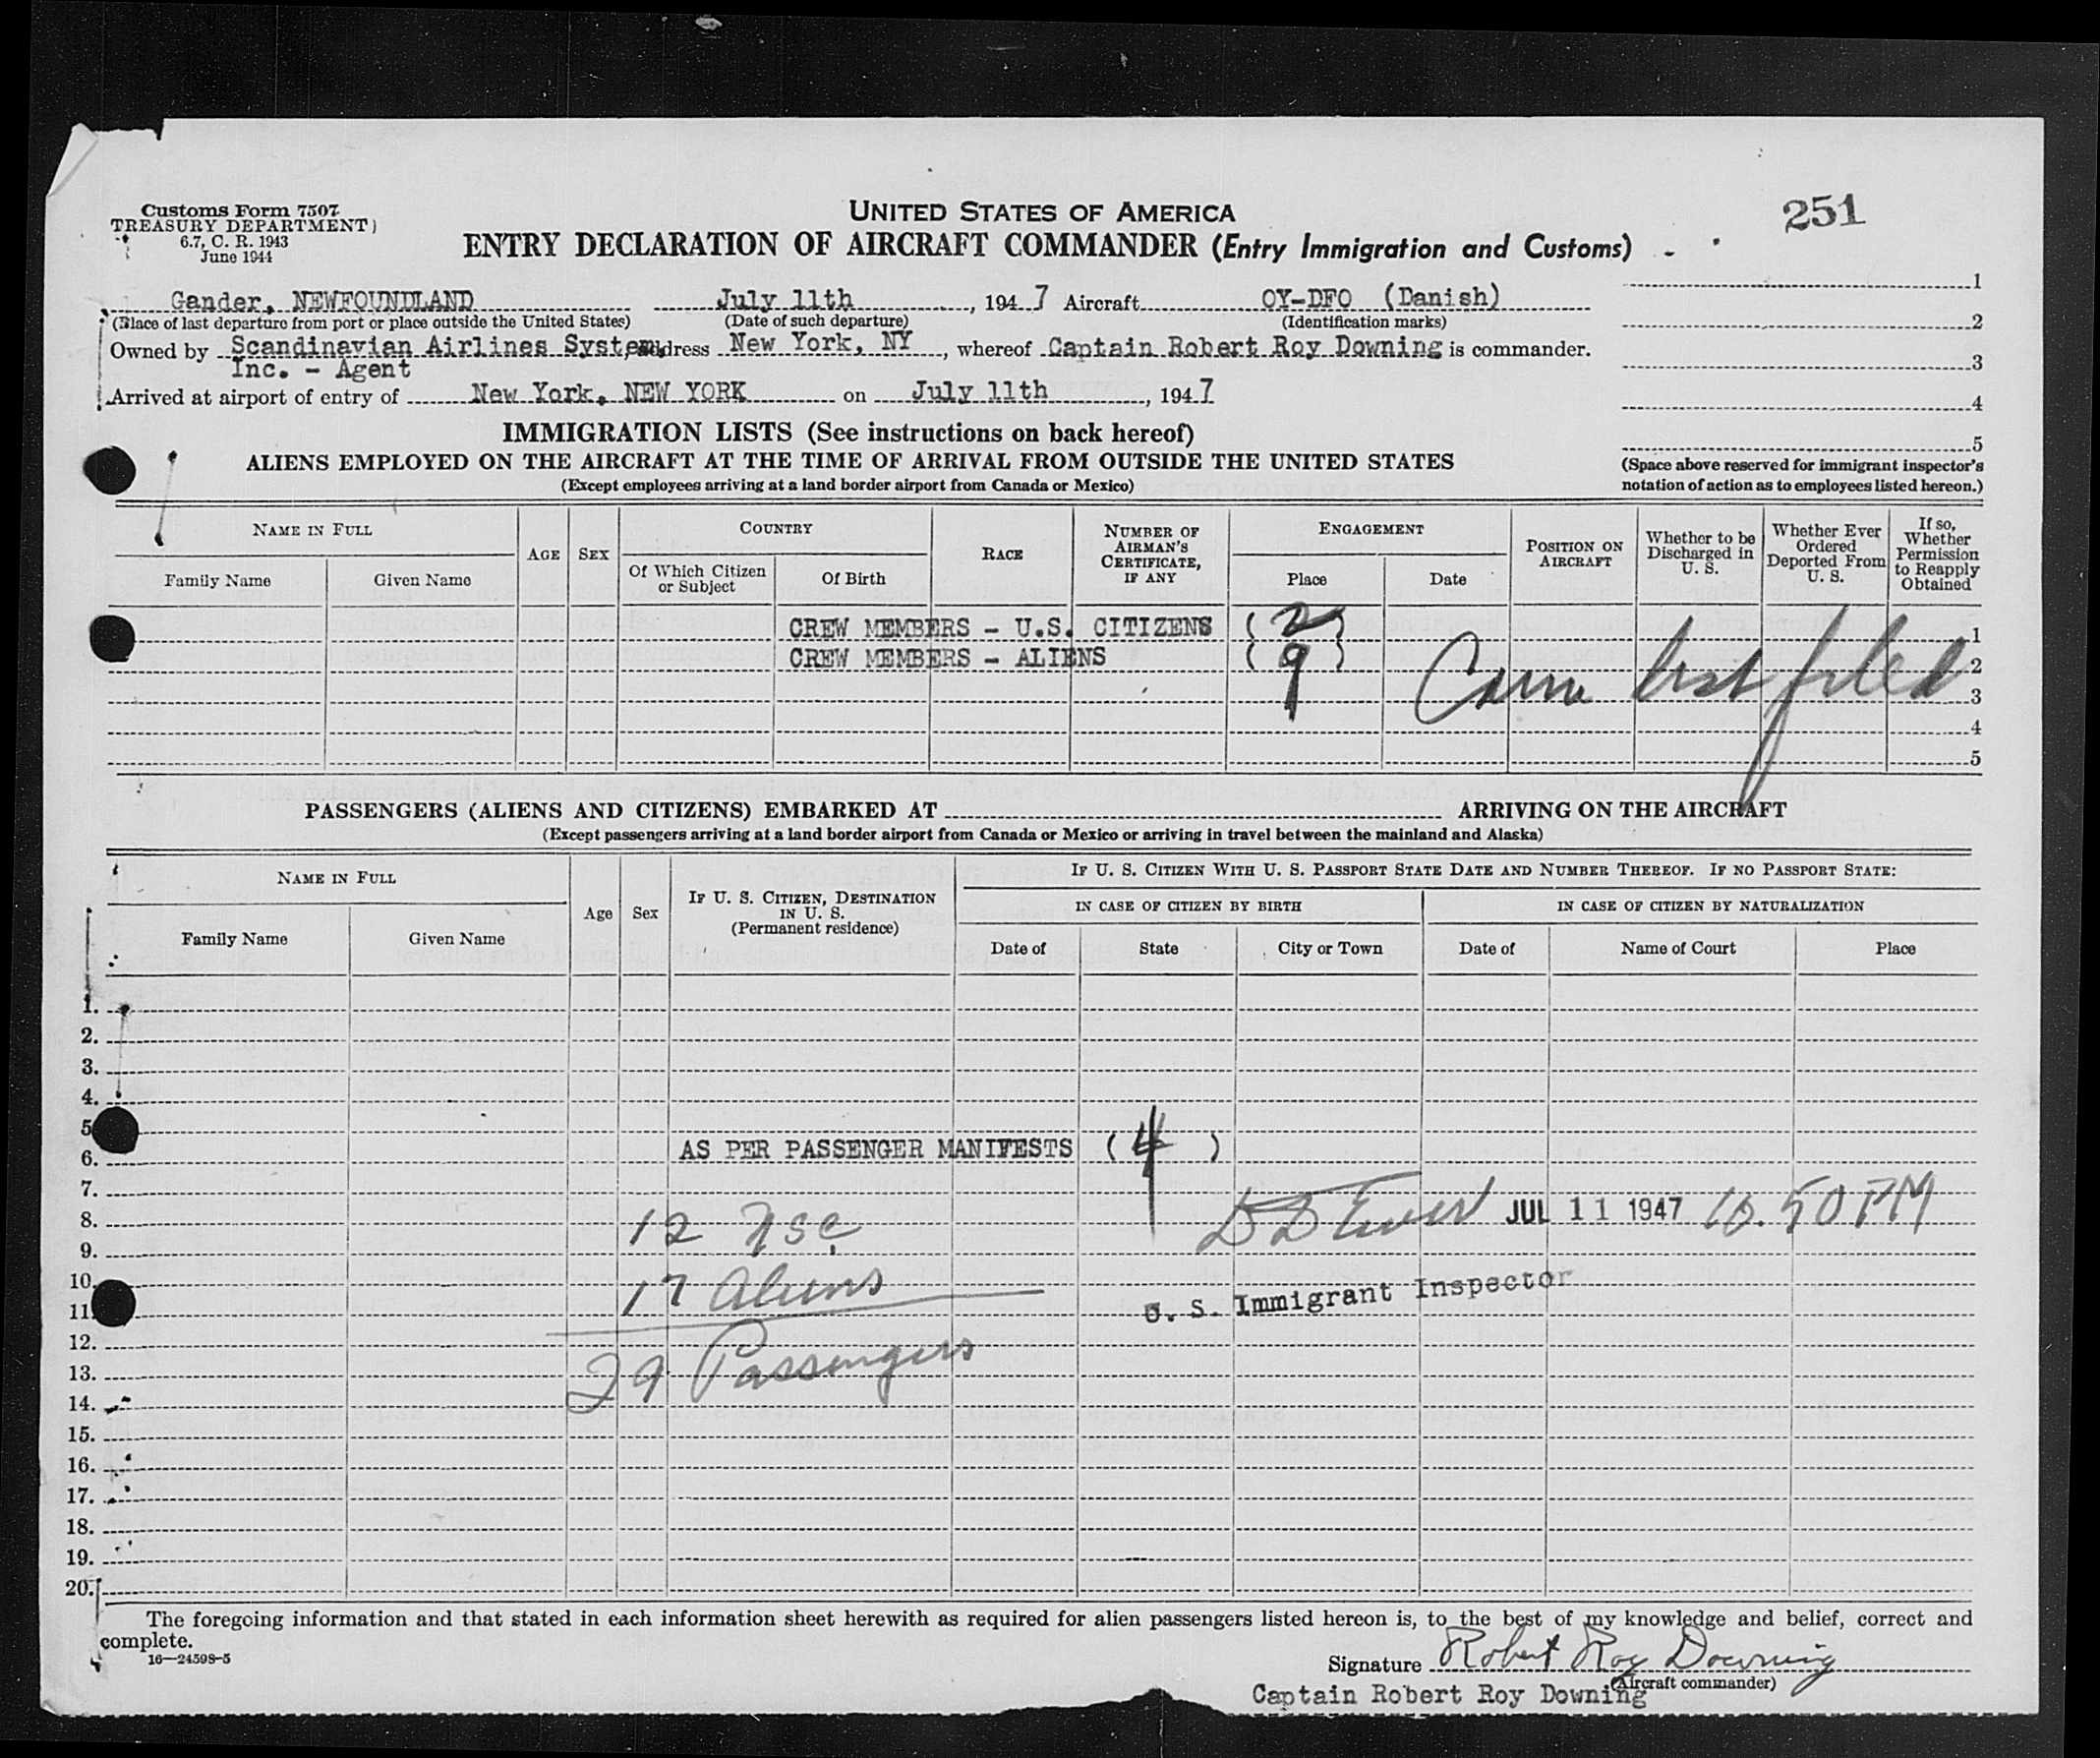 Customs Form 7507
TREASURY DEPARTMENT
6.7, C. R. 1943
June 1944
UNITED STATES OF AMERICA
251
ENTRY DECLARATION OF AIRCRAFT COMMANDER (Entry Immigration and Customs)
Gander, NEWFOUNDLAND July 11th, 1947 Aircraft OY-DFO (Danish)
(Place of last departure from port or place outside the United States) (Date of such departure) (Identification marks)
Owned by Scandinavian Airlines System, address New York, NY, whereof Captain Robert Roy Downing is commander.
Inc. - Agent
Arrived at airport of entry of New York, NEW YORK on July 11th, 1947
1
2
3
4
5
(Space above reserved for immigrant inspector's
notation of action as to employees listed hereon.)
IMMIGRATION LISTS (See instructions on back hereof)
ALIENS EMPLOYED ON THE AIRCRAFT AT THE TIME OF ARRIVAL FROM OUTSIDE THE UNITED STATES
(Except employees arriving at a land border airport from Canada or Mexico)
NAME IN FULL
Family Name Given Name
AGE SEX
COUNTRY
Of Which Citizen
or Subject
Of Birth
RACE
NUMBER OF
AIRMAN'S
CERTIFICATE,
IF ANY
ENGAGEMENT
Place Date
POSITION ON
AIRCRAFT
Whether to be
Discharged in
U. S.
Whether Ever
Ordered
Deported From
U. S.
If so,
Whether
Permission
to Reapply
Obtained
CREW MEMBERS - U.S. CITIZENS (2) 1
CREW MEMBERS - ALIENS (9) 2
list filed 3
4
5
PASSENGERS (ALIENS AND CITIZENS) EMBARKED AT ARRIVING ON THE AIRCRAFT
(Except passengers arriving at a land border airport from Canada or Mexico or arriving in travel between the mainland and Alaska)
NAME IN FULL
Family Name Given Name
Age Sex
IF U. S. CITIZEN, DESTINATION
IN U. S.
(Permanent residence)
IF U. S. CITIZEN WITH U. S. PASSPORT STATE DATE AND NUMBER THEREOF. IF NO PASSPORT STATE:
IN CASE OF CITIZEN BY BIRTH IN CASE OF CITIZEN BY NATURALIZATION
Date of State City or Town Date of Name of Court Place
1.
2.
3.
4.
5
6. AS PER PASSENGER MANIFESTS (4)
7.
8. 12 JUL 11 1947 10.50 PM
9.
10. 17 Aliens
11 U. S. Immigrant Inspector
12.
13. 29 Passengers
14.
15.
16.
17.
18.
19.
20.
The foregoing information and that stated in each information sheet herewith as required for alien passengers listed hereon is, to the best of my knowledge and belief, correct and
complete.
16—24598-5
Signature Robert Roy Downing
(Aircraft commander)
Captain Robert Roy Downing